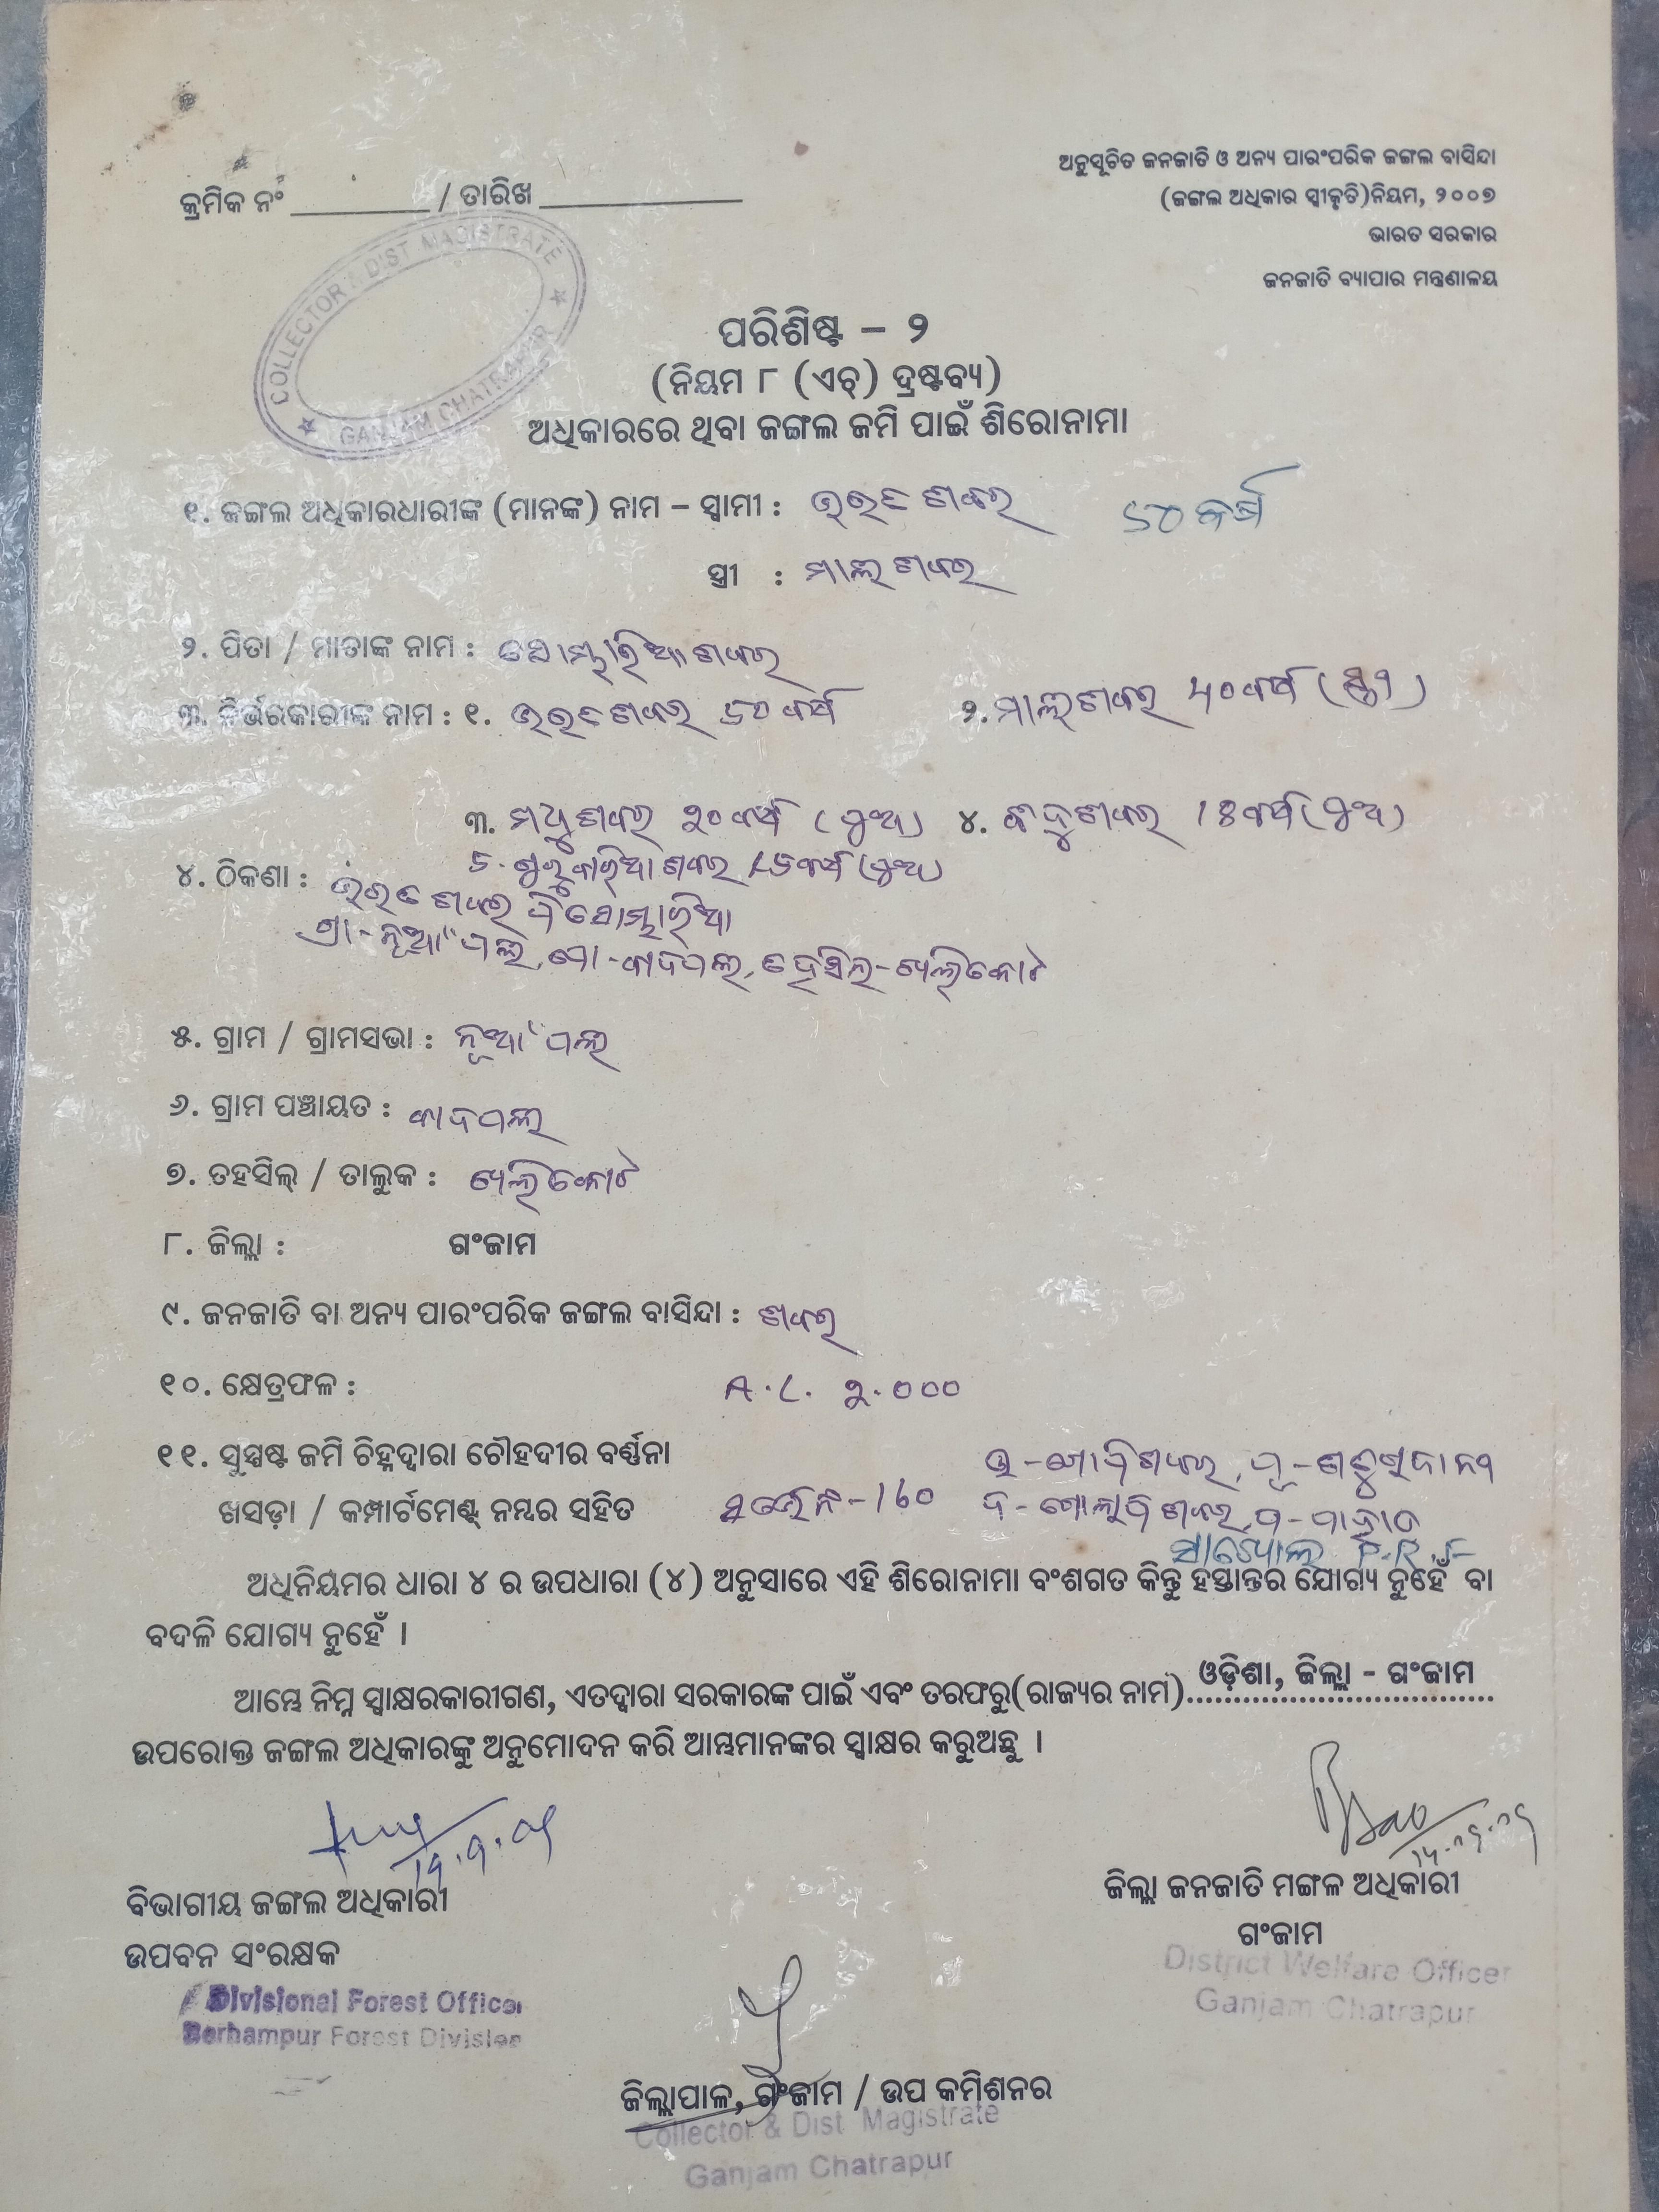 ଅନୁସୂଚିତ ଜନଜାତି ଓ ଅନ୍ୟ ପାରଂପରିକ ଜଙ୍ଗଲ ବାସିନ୍ଦା
କ୍ରମିକ ନଂ ________ / ତାରିଖ ____________
(ଜଙ୍ଗଲ ଅଧିକାର ସ୍ୱୀକୃତି)ନିୟମ, ୨୦୦୭
ଭାରତ ସରକାର
ଜନଜାତି ବ୍ୟାପାର ମନ୍ତ୍ରଣାଳୟ
COLLECTOR & DIST MAGISTRATE
GANJAM CHATRAPUR
ପରିଶିଷ୍ଟ – ୨
(ନିୟମ ୮ (ଏଚ୍) ଦ୍ରଷ୍ଟବ୍ୟ)
ଅଧିକାରରେ ଥିବା ଜଙ୍ଗଲ ଜମି ପାଇଁ ଶିରୋନାମା
୧. ଜଙ୍ଗଲ ଅଧିକାରଧାରୀଙ୍କ (ମାନଙ୍କ) ନାମ – ସ୍ୱାମୀ : ଶବର ୬୦ ବର୍ଷ
ସ୍ତ୍ରୀ : ମାଲ ଶବର
୨. ପିତା / ମାତାଙ୍କ ନାମ : ସୋମ୍ଭାରିଆ ଶବର
୩. ନିର୍ଭରକାରୀଙ୍କ ନାମ : ୧. ଶବର ୬୦ ବର୍ଷ ୨. ମାଲ ଶବର ୫୦ ବର୍ଷ (ସ୍ତ୍ରୀ)
୩. ମଧୁ ଶବର ୨୦ ବର୍ଷ (ପୁଅ) ୪. ଶବର ୧୫ ବର୍ଷ (ପୁଅ)
୪. ଠିକଣା : ଶବର ପି ସୋମ୍ଭାରିଆ
ଗ୍ରା - ନୂଆଁପଲ୍ଲୀ, ପୋ - କାଦପଲ୍ଲୀ, ତହସିଲ - ଖଲ୍ଲିକୋଟ
୫. ଗ୍ରାମ / ଗ୍ରାମସଭା : ନୂଆଁପଲ୍ଲୀ
୬. ଗ୍ରାମ ପଞ୍ଚାୟତ : କାଦପଲ୍ଲୀ
୭. ତହସିଲ୍ / ତାଲୁକ : ଖଲ୍ଲିକୋଟ
୮. ଜିଲ୍ଲା : ଗଂଜାମ
୯. ଜନଜାତି ବା ଅନ୍ୟ ପାରଂପରିକ ଜଙ୍ଗଲ ବାସିନ୍ଦା : ଶବର
୧୦. କ୍ଷେତ୍ରଫଳ : A.C. ୨.୦୦୦
୧୧. ସୁସ୍ପଷ୍ଟ ଜମି ଚିହ୍ନଦ୍ୱାରା ଚୌହଦୀର ବର୍ଣ୍ଣନା
ଖସଡ଼ା / କମ୍ପାର୍ଟମେଣ୍ଟ୍ ନମ୍ବର ସହିତ
P.R.F
ଅଧିନିୟମର ଧାରା ୪ ର ଉପଧାରା (୪) ଅନୁସାରେ ଏହି ଶିରୋନାମା ବଂଶଗତ କିନ୍ତୁ ହସ୍ତାନ୍ତର ଯୋଗ୍ୟ ନୁହେଁ ବା
ବଦଳି ଯୋଗ୍ୟ ନୁହେଁ ।
ଆମ୍ଭେ ନିମ୍ନ ସ୍ୱାକ୍ଷରକାରୀଗଣ, ଏତଦ୍ୱାରା ସରକାରଙ୍କ ପାଇଁ ଏବଂ ତରଫରୁ(ରାଜ୍ୟର ନାମ) ଓଡ଼ିଶା, ଜିଲ୍ଲା - ଗଂଜାମ
ଉପରୋକ୍ତ ଜଙ୍ଗଲ ଅଧିକାରଙ୍କୁ ଅନୁମୋଦନ କରି ଆମ୍ଭମାନଙ୍କର ସ୍ୱାକ୍ଷର କରୁଅଛୁ ।
ବିଭାଗୀୟ ଜଙ୍ଗଲ ଅଧିକାରୀ
ଉପବନ ସଂରକ୍ଷକ
Divisional Forest Officer
Berhampur Forest Division
ଜିଲ୍ଲା ଜନଜାତି ମଙ୍ଗଳ ଅଧିକାରୀ
ଗଂଜାମ
District Welfare Officer
Ganjam Chatrapur
ଜିଲ୍ଲାପାଳ, ଗଂଜାମ / ଉପ କମିଶନର
Collector & Dist Magistrate
Ganjam Chatrapur